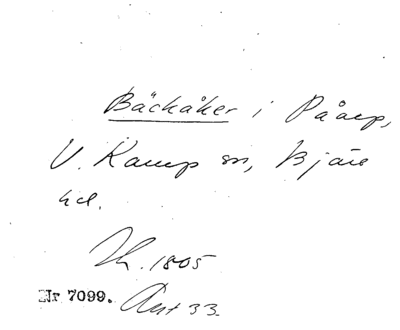 Bäckåker i Påarp,
V. Karup sn, Bjäre
hd.
Th. 1805
Nr 7099. Avst 33.